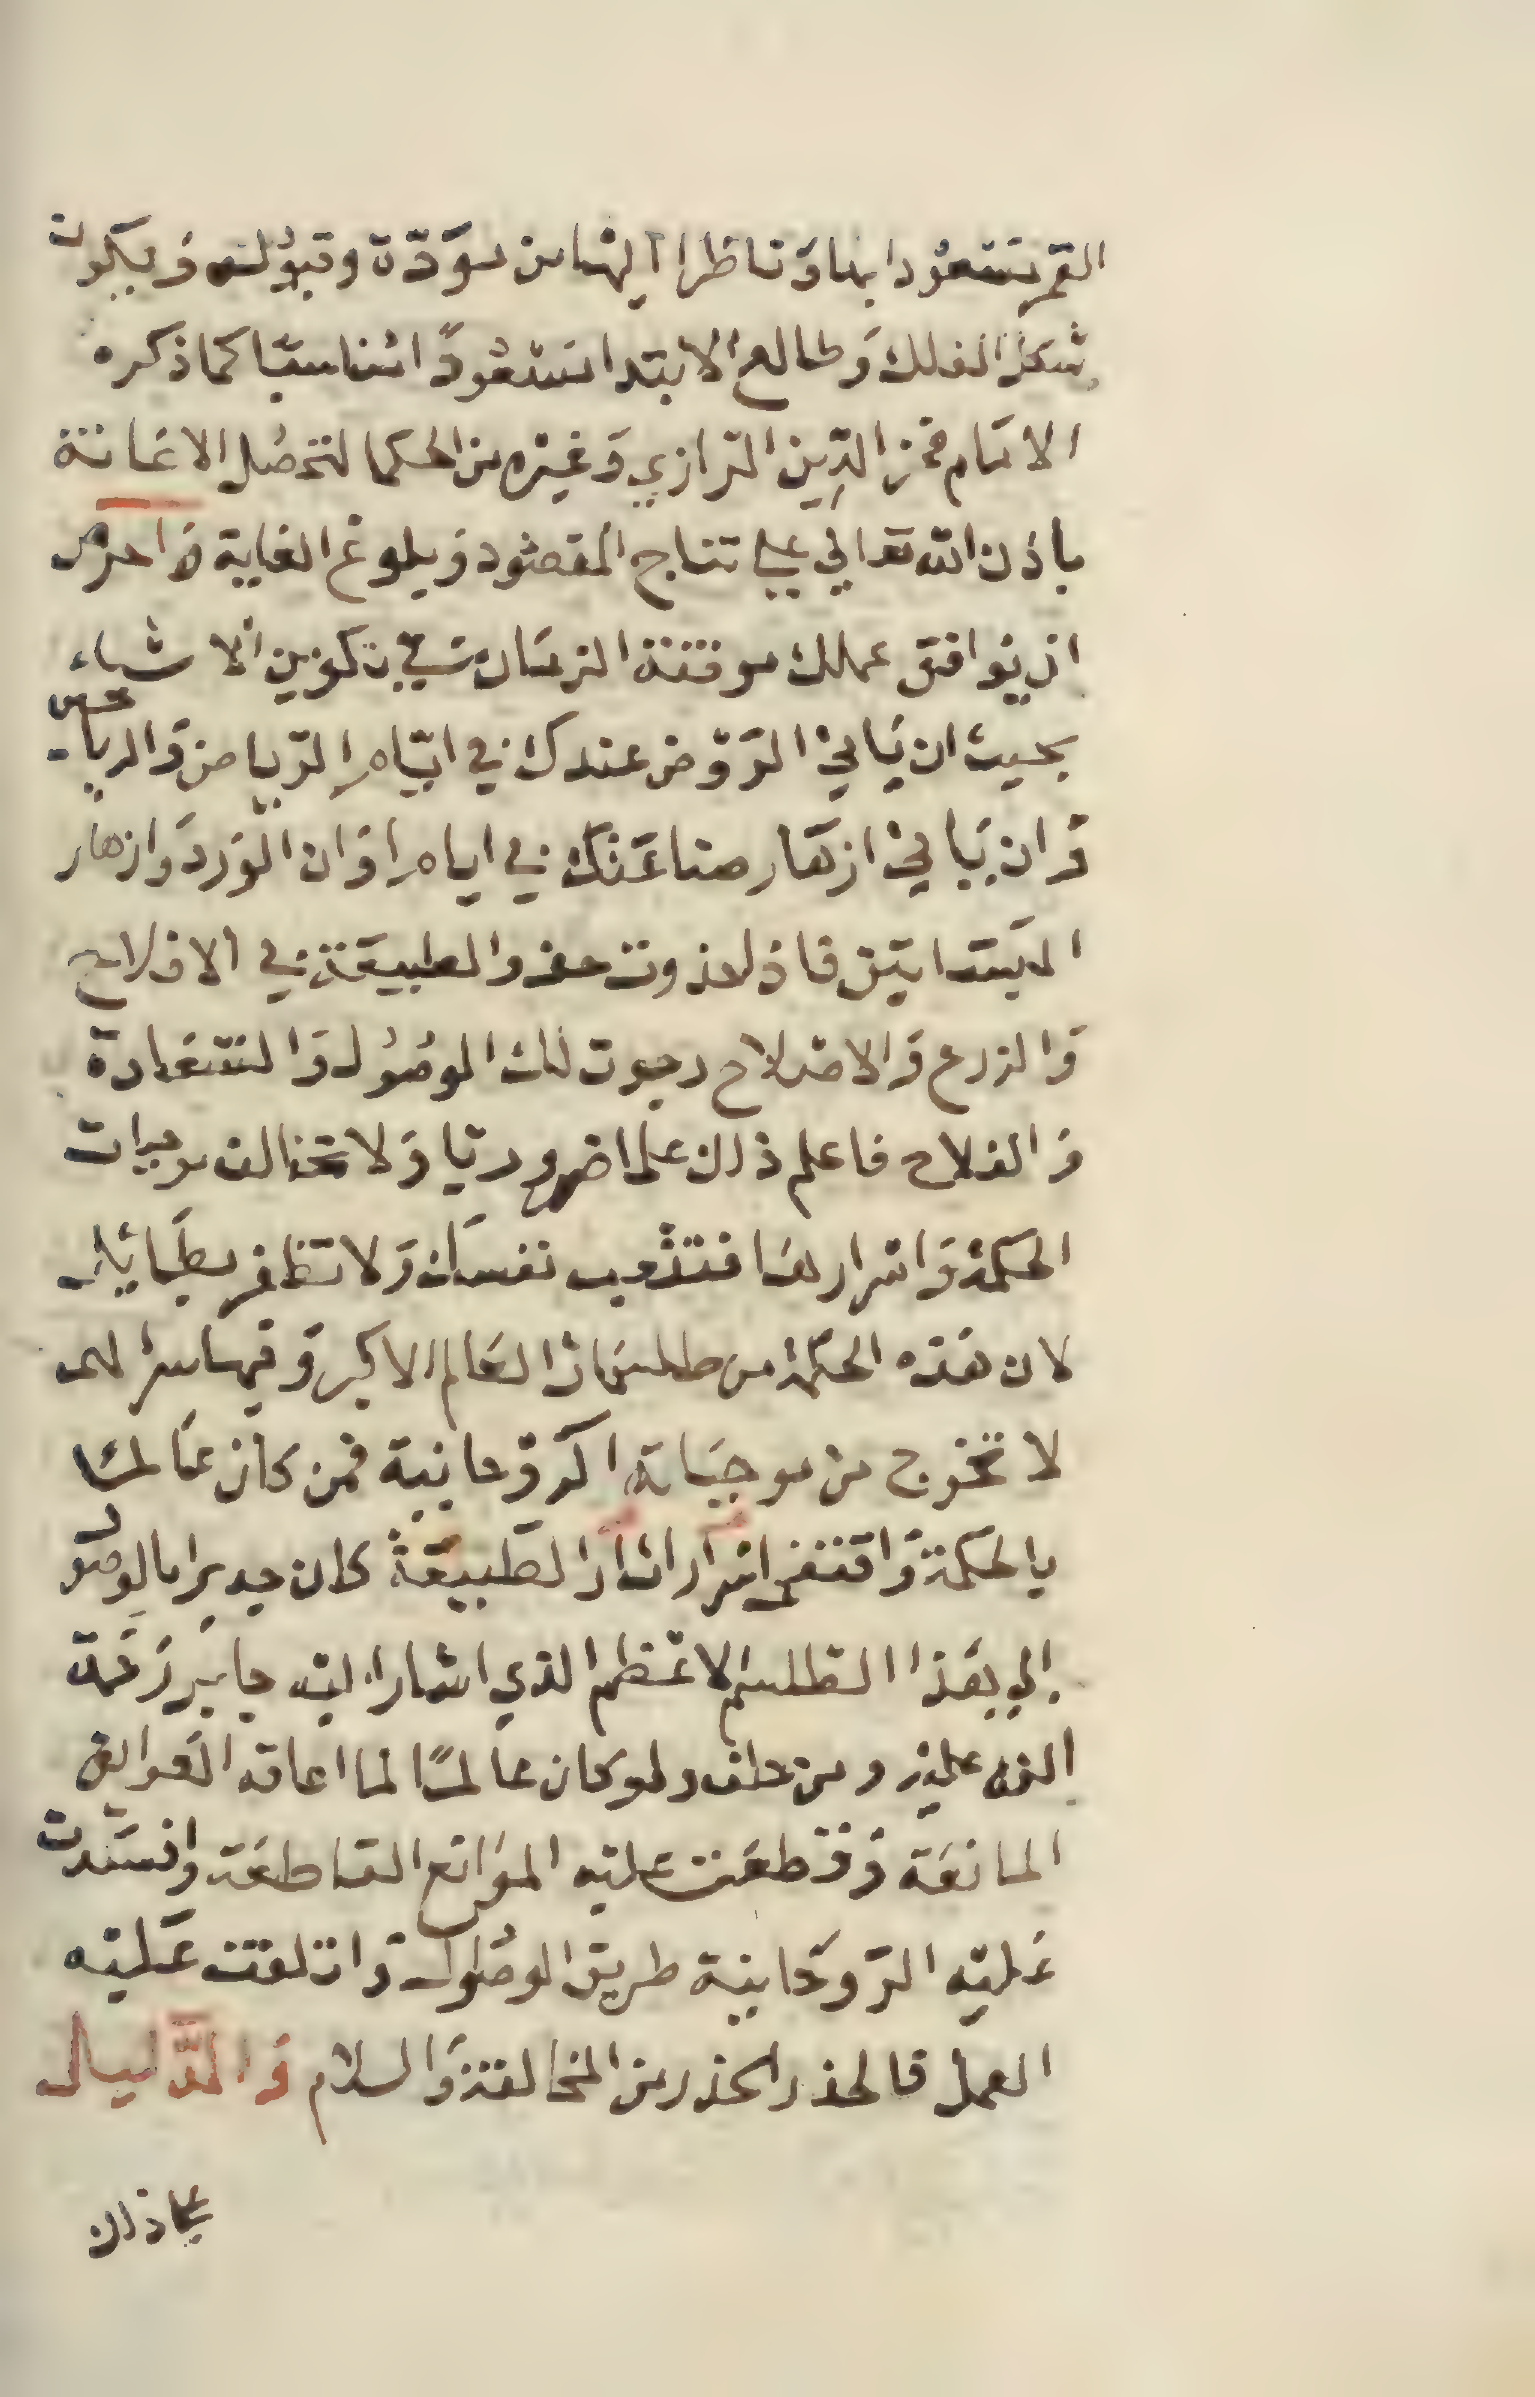 القمر مسعودا بها وناظرا اليها من مودة وقبول ويكون
شكل الفلك وطالع الابتدا مسعودًا مناسبًا كما ذكره
الامام فخر الدين الرازي وغيره من الحكما لتحصل الاعانة
باذن الله تعالي علي نتاج المقصود وبلوغ الغاية واحرص
ان يوافق عملك موقتة الزمان في تكوين الاشياء
بحيث ان ياتي الروض عندك في ايام الرياض والرياحين
وان ياتي ازهار صناعتك في ايام اوان الورد وازهار
البساتين فاذا حذوت حذو الطبيعة في الافلاح
والزرع والاصلاح رجوت لك الوصول والسعادة
والفلاح فاعلم ذلك علما ضروريا ولا تخالف موجبات
الحكمة واسرارها فتتعب نفسك ولا تظفر بطايل
لان هذه الحكمة من طلسمات العالم الاكبر وفيها سر الهى
لا تخرج من موجباة الروحانية فمن كان عالمًا
بالحكمة واقتفى اسرار اثار الطبيعة كان جديرا بالوصول
الي هذا الطلسم الاعظم الذي اشار اليه جابر رحمة
الله عليه ومن خلف ولو كان عالمًا لما اعاقه العوايق
المانعة وقطعت عليه الموانع القاطعة وانسدت
عليه الروحانية طريق الوصول واتلفت عليه
العمل فالحذر الحذر من المخالفة والسلام والدليل
علي ذلك